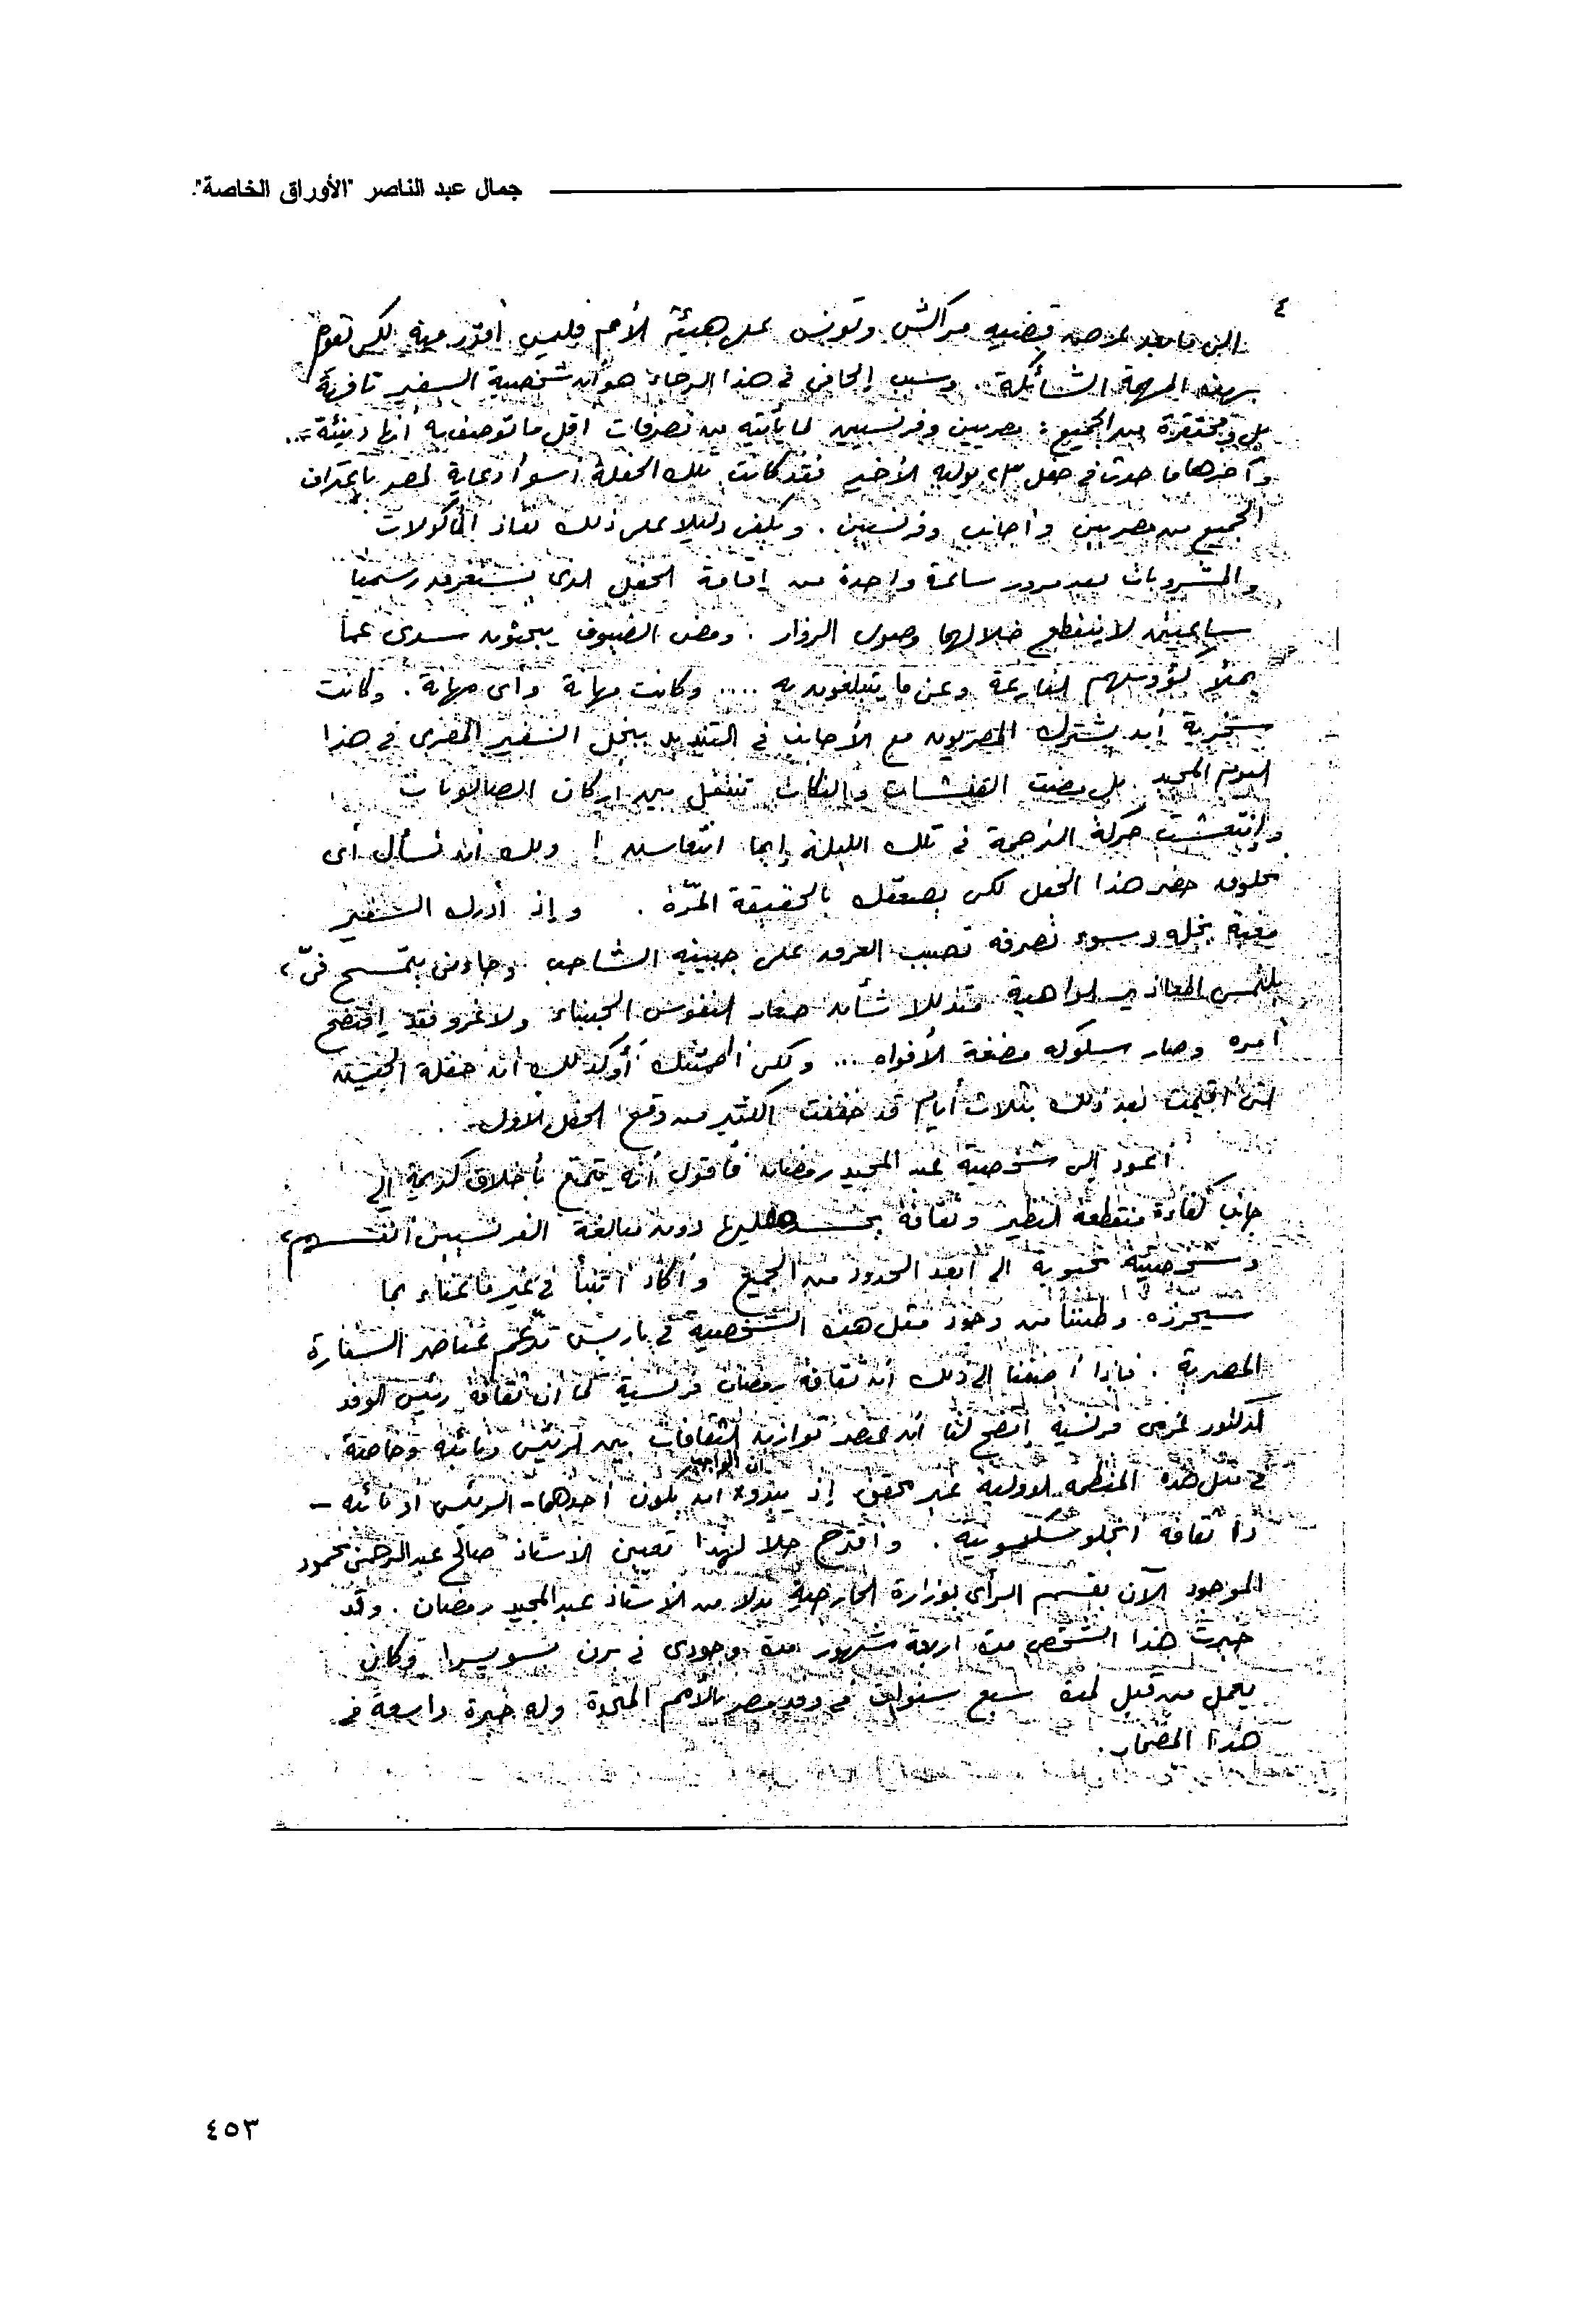 جمال عبد الناصر "الأوراق الخاصة".
٤
إلى ما بعد عرض قضية مراكش وتونس على هيئة الأمم فليس أقدر منه لكى تقوم
بهذه المهمة الشائكة. وسبب إلحافى فى هذا الرجاء هو أن شخصية السفير تافهة
بل ومحتقرة من الجميع: مصريين وفرنسيين لما يأتيه من تصرفات اقل ما توصف به أنها دنيئة ...
وآخرها ما حدث فى حفل ٢٣ يوليه الأخير فقد كانت تلك الحفلة أسوأ دعاية لمصر باعتراف
الجميع من مصريين وأجانب وفرنسيين. ويكفى دليلا على ذلك نفاذ المأكولات
والمشروبات بعد مرور ساعة واحدة من إقامة الحفل الذى يستغرق رسميا
ساعتين لا ينقطع خلالهما وصول الزوار. ومضى الضيوف يبحثون سدى عما
يملأ كؤوسهم الفارغة وعن ما يتبلغون به ..... وكانت مهانة وأى مهانة. وكانت
سخرية أن يشترك المصريون مع الأجانب فى التنديد ببخل السفير المصرى فى هذا
اليوم المجيد. بل مضت القفشات والنكات تنتقل بين اركان الصالونات
وانتعشت حركة الترجمة فى تلك الليلة إيما انتعاش! ولك أن تسأل أى
مخلوق حضر هذا الحفل لكى يصعقك بالحقيقة المرّة. وإذ أدرك السفير
مغبة بخله وسوء تصرفه تصبب العرق على جبينه الشاحب وجاءنى يتمسح فىّ،
يلتمس المعاذير الواهية متذللا شأن صغار النفوس الجبناء ولا غرو فقد افتضح
أمره وصار سلوكه مضغة الأفواه ... ولكى أطمئنك أؤكد لك أن حفلة الجيش
التى أقيمت بعد ذلك بثلاث أيام قد خففت الكثير من وقع الحفل الأول.
أعود إلى شخصية عبد المجيد رمضان فأقول أنه يتمتع بأخلاق كريمة إلى
جانب كفاءة منقطعة النظير وثقافة يحسده عليها دون مبالغة الفرنسيين أنفسهم،
وشخصية محبوبة الى أبعد الحدود من الجميع وأكاد أتنبأ فى غير ما عناء بما
سيحرزه وطننا من وجود مثل هذه الشخصية فى باريس تدعم عناصر السفارة
المصرية. فإذا أضفنا الى ذلك أن ثقافة رمضان فرنسية كما أن ثقافة رئيس الوفد
الدكتور عزمى فرنسية إتضح لنا أن عنصر توازن الثقافات بين الرئيس ونائبه وخاصة
فى مثل هذه المنظمه الدولية غير محقق إذ يبدو أن الواجب أن يكون أحدهما - الرئيس او نائبه -
ذا ثقافة أنجلوسكسونية. وأقترح حلا لهذا تعيين الأستاذ صالح عبد الرحمن محمود
الموجود الآن بقسم الرأى بوزارة الخارجية بدلا من الأستاذ عبد المجيد رمضان. وقد
خبرت هذا الشخص مدة اربعة شهور مدة وجودى فى برن بسويسرا وكان
يعمل من قبل لمدة سبع سنوات فى وفد مصر بالأمم المتحدة وله خبرة واسعة فى
هذا المضمار.
٤٥٣